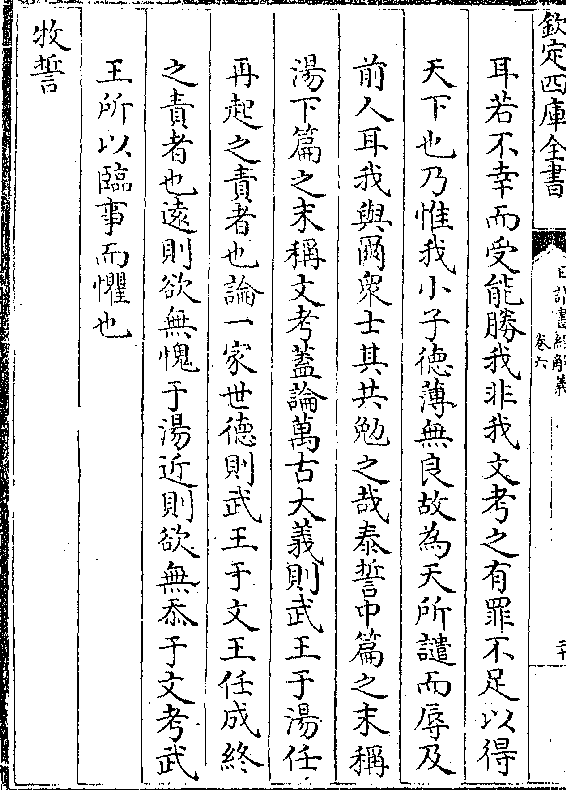 欽定四庫全書
日講書經解義
卷六
耳若不幸而受能勝我非我文考之有罪不足以得
天下也乃惟我小子德薄無良故為天所譴而辱及
前人耳我與爾衆士其共勉之哉泰誓中篇之末稱
湯下篇之末稱文考蓋論萬古大義則武王于湯任
再起之責者也論一家世德則武王于文王任成終
之責者也遠則欲無愧于湯近則欲無忝于文考武
王所以臨事而懼也
牧誓